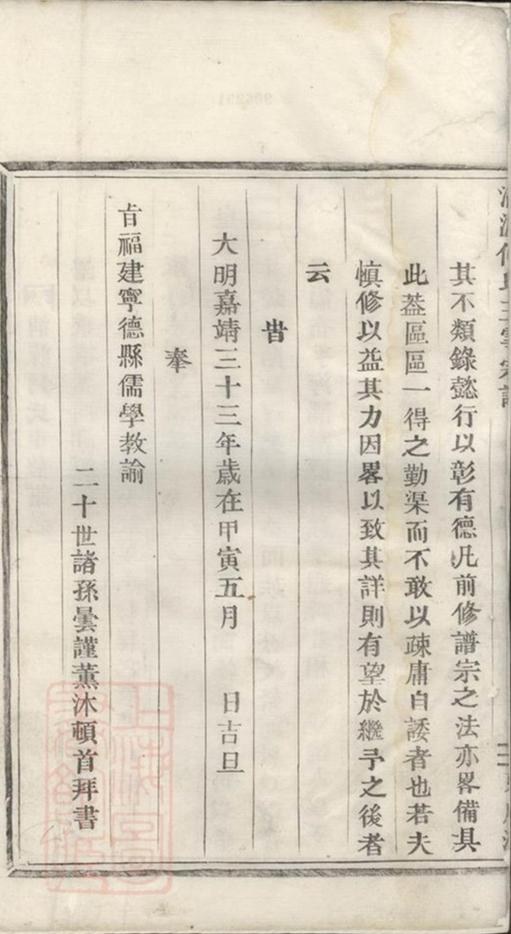 其不類錄懿行以彰有德凡前修譜宗之法亦畧備具
此葢區區一得之勤渠而不敢以疎庸自諉者也若夫
慎修以益其力因畧以致其詳則有望於繼予之後者
云
旹
大明嘉靖三十三年歲在甲寅五月 日吉旦
奉
旨福建寧德縣儒學教諭
二十世諸孫曇謹薰沐頓首拜書